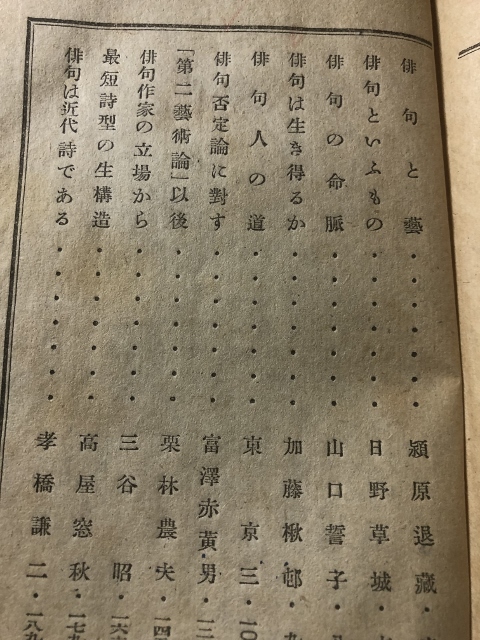 俳句と藝・・・・・・・・頴原退藏・
俳句といふもの・・・・・・・・日野草城・
俳句の命脈・・・・・・・・山口誓子・
俳句は生き得るか・・・・・・・・加藤楸邨・九
俳句人の道・・・・・・・・東京三・一〇
俳句否定論に對す・・・・・・・・富澤赤黄男・一二
「第二藝術論」以後・・・・・・・・栗林農夫・一四
俳句作家の立場から・・・・・・・・三谷昭・一六
最短詩型の生構造・・・・・・・・高屋窓秋・一七
俳句は近代詩である・・・・・・・・孝橋謙二・一八九